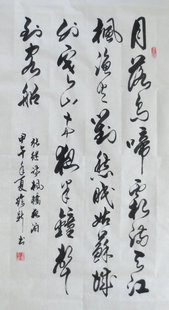 月落烏啼霜满天江
楓渔火對愁眠姑蘇城
外寒山寺夜半鐘聲
到客船
张继诗楓橋夜泊
甲午年夏书